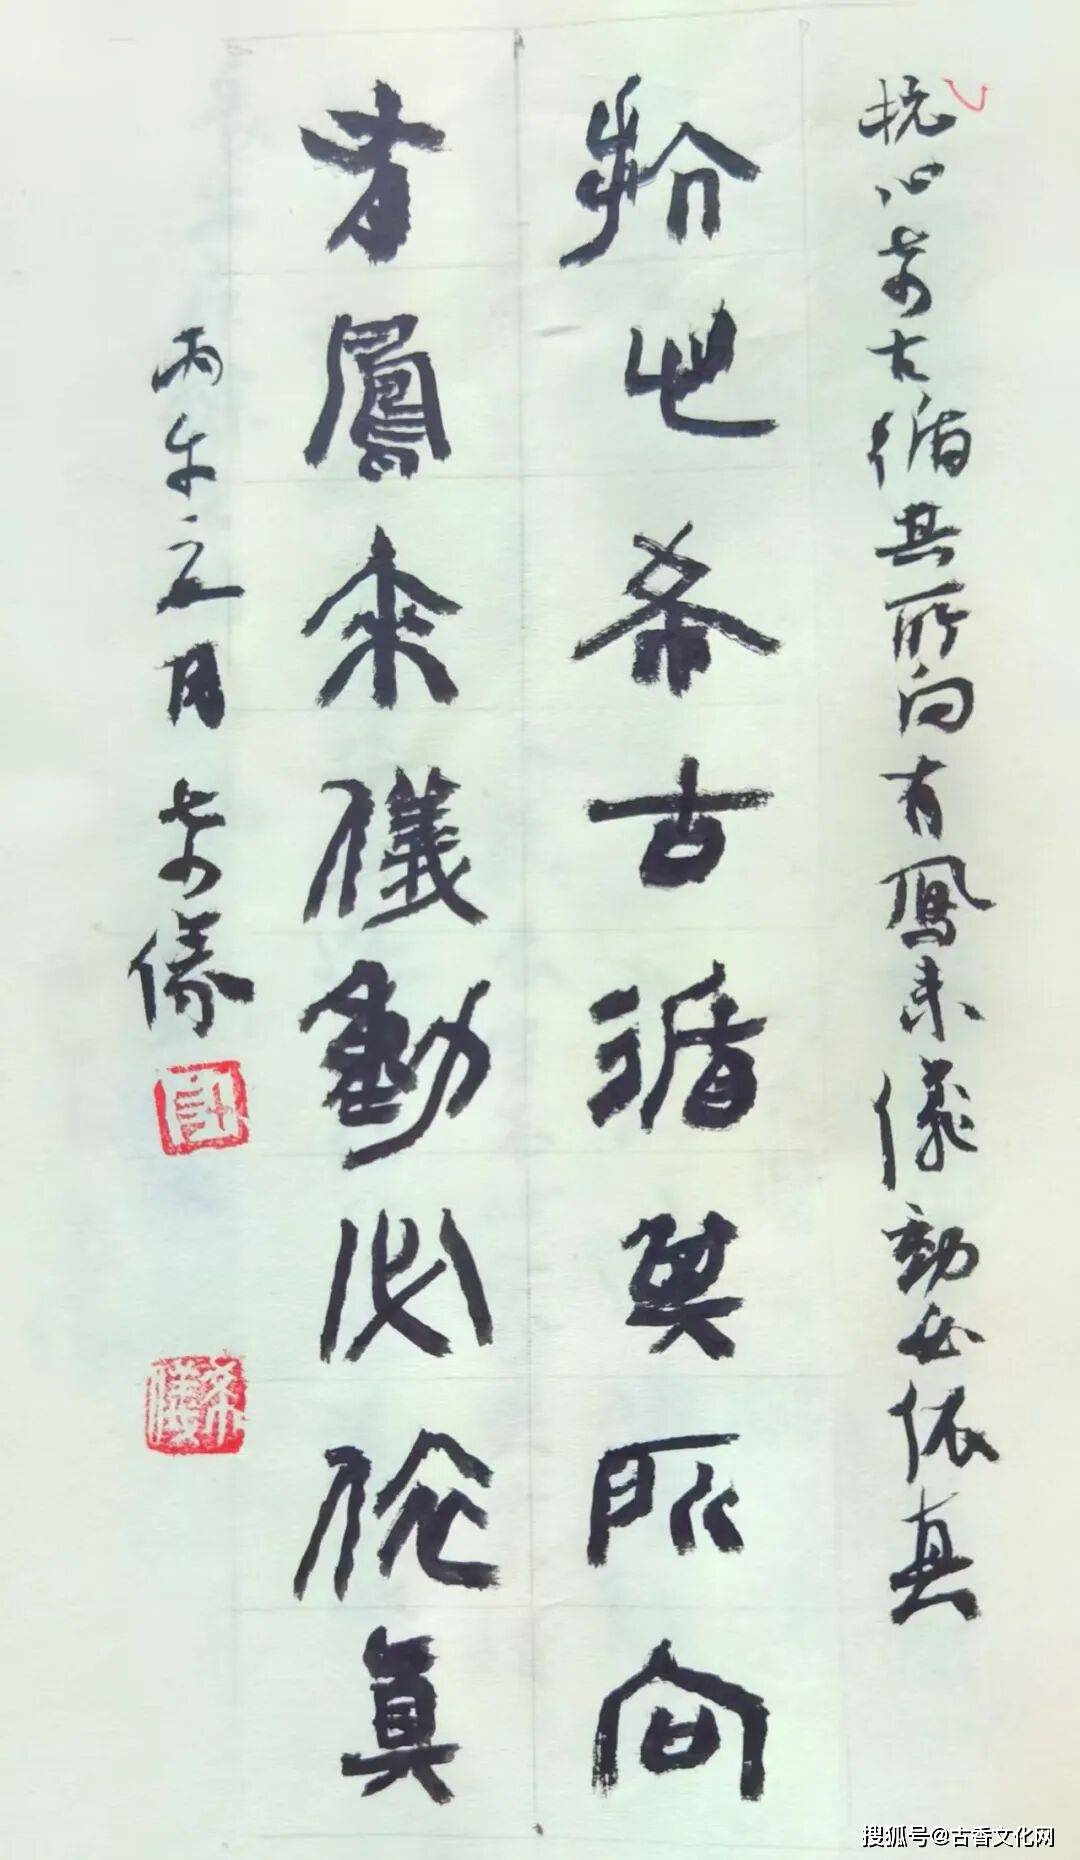 抗心希古循其所向有鳳来儀動必依真
抗心希古循其所向
有鳳來儀動必依真
丙午元月 希儀
希儀
搜狐号@古香文化网